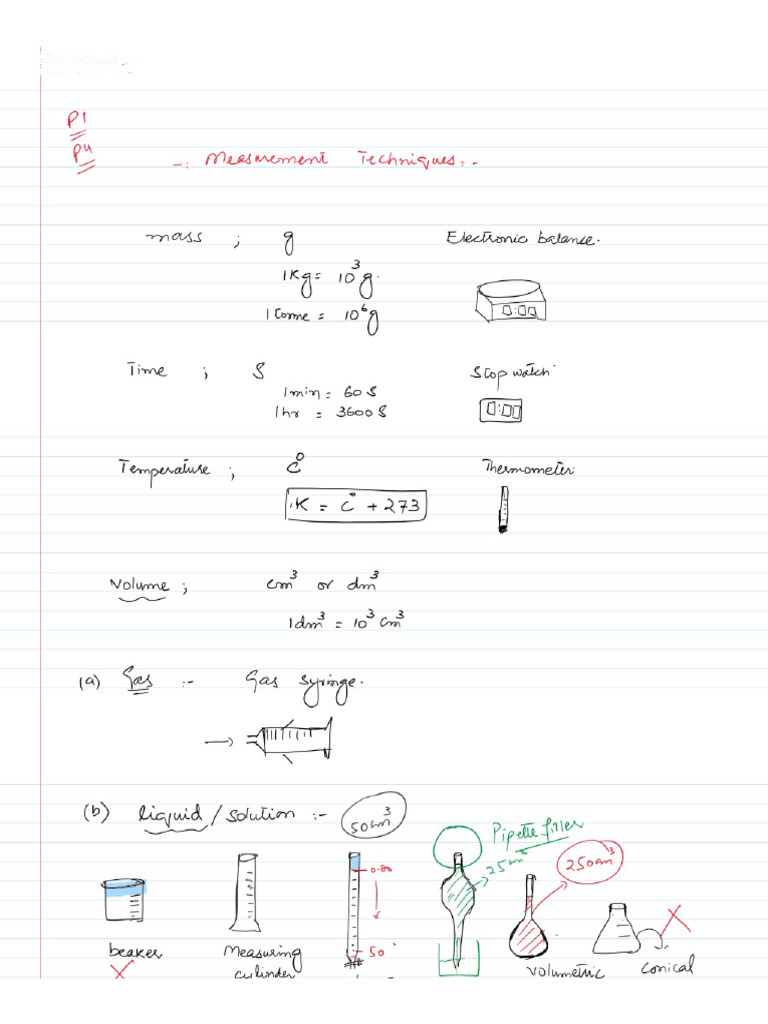 P1
P4
-: Measurement Techniques:-
mass ; g Electronic balance.
1Kg = 10³g.
1 tonne = 10⁶g
0:00
Time ; S Stop watch
1min = 60S
1hr = 3600S
0:00
Temperature ; C° Thermometer
K = C° + 273
Volume ; cm³ or dm³
1dm³ = 10³ cm³
(a) Gas :- Gas syringe.
(b) liquid / solution :- 50cm³
Pipette filler
0.00 25cm³ 250cm³
50
beaker Measuring cylinder volumetric conical